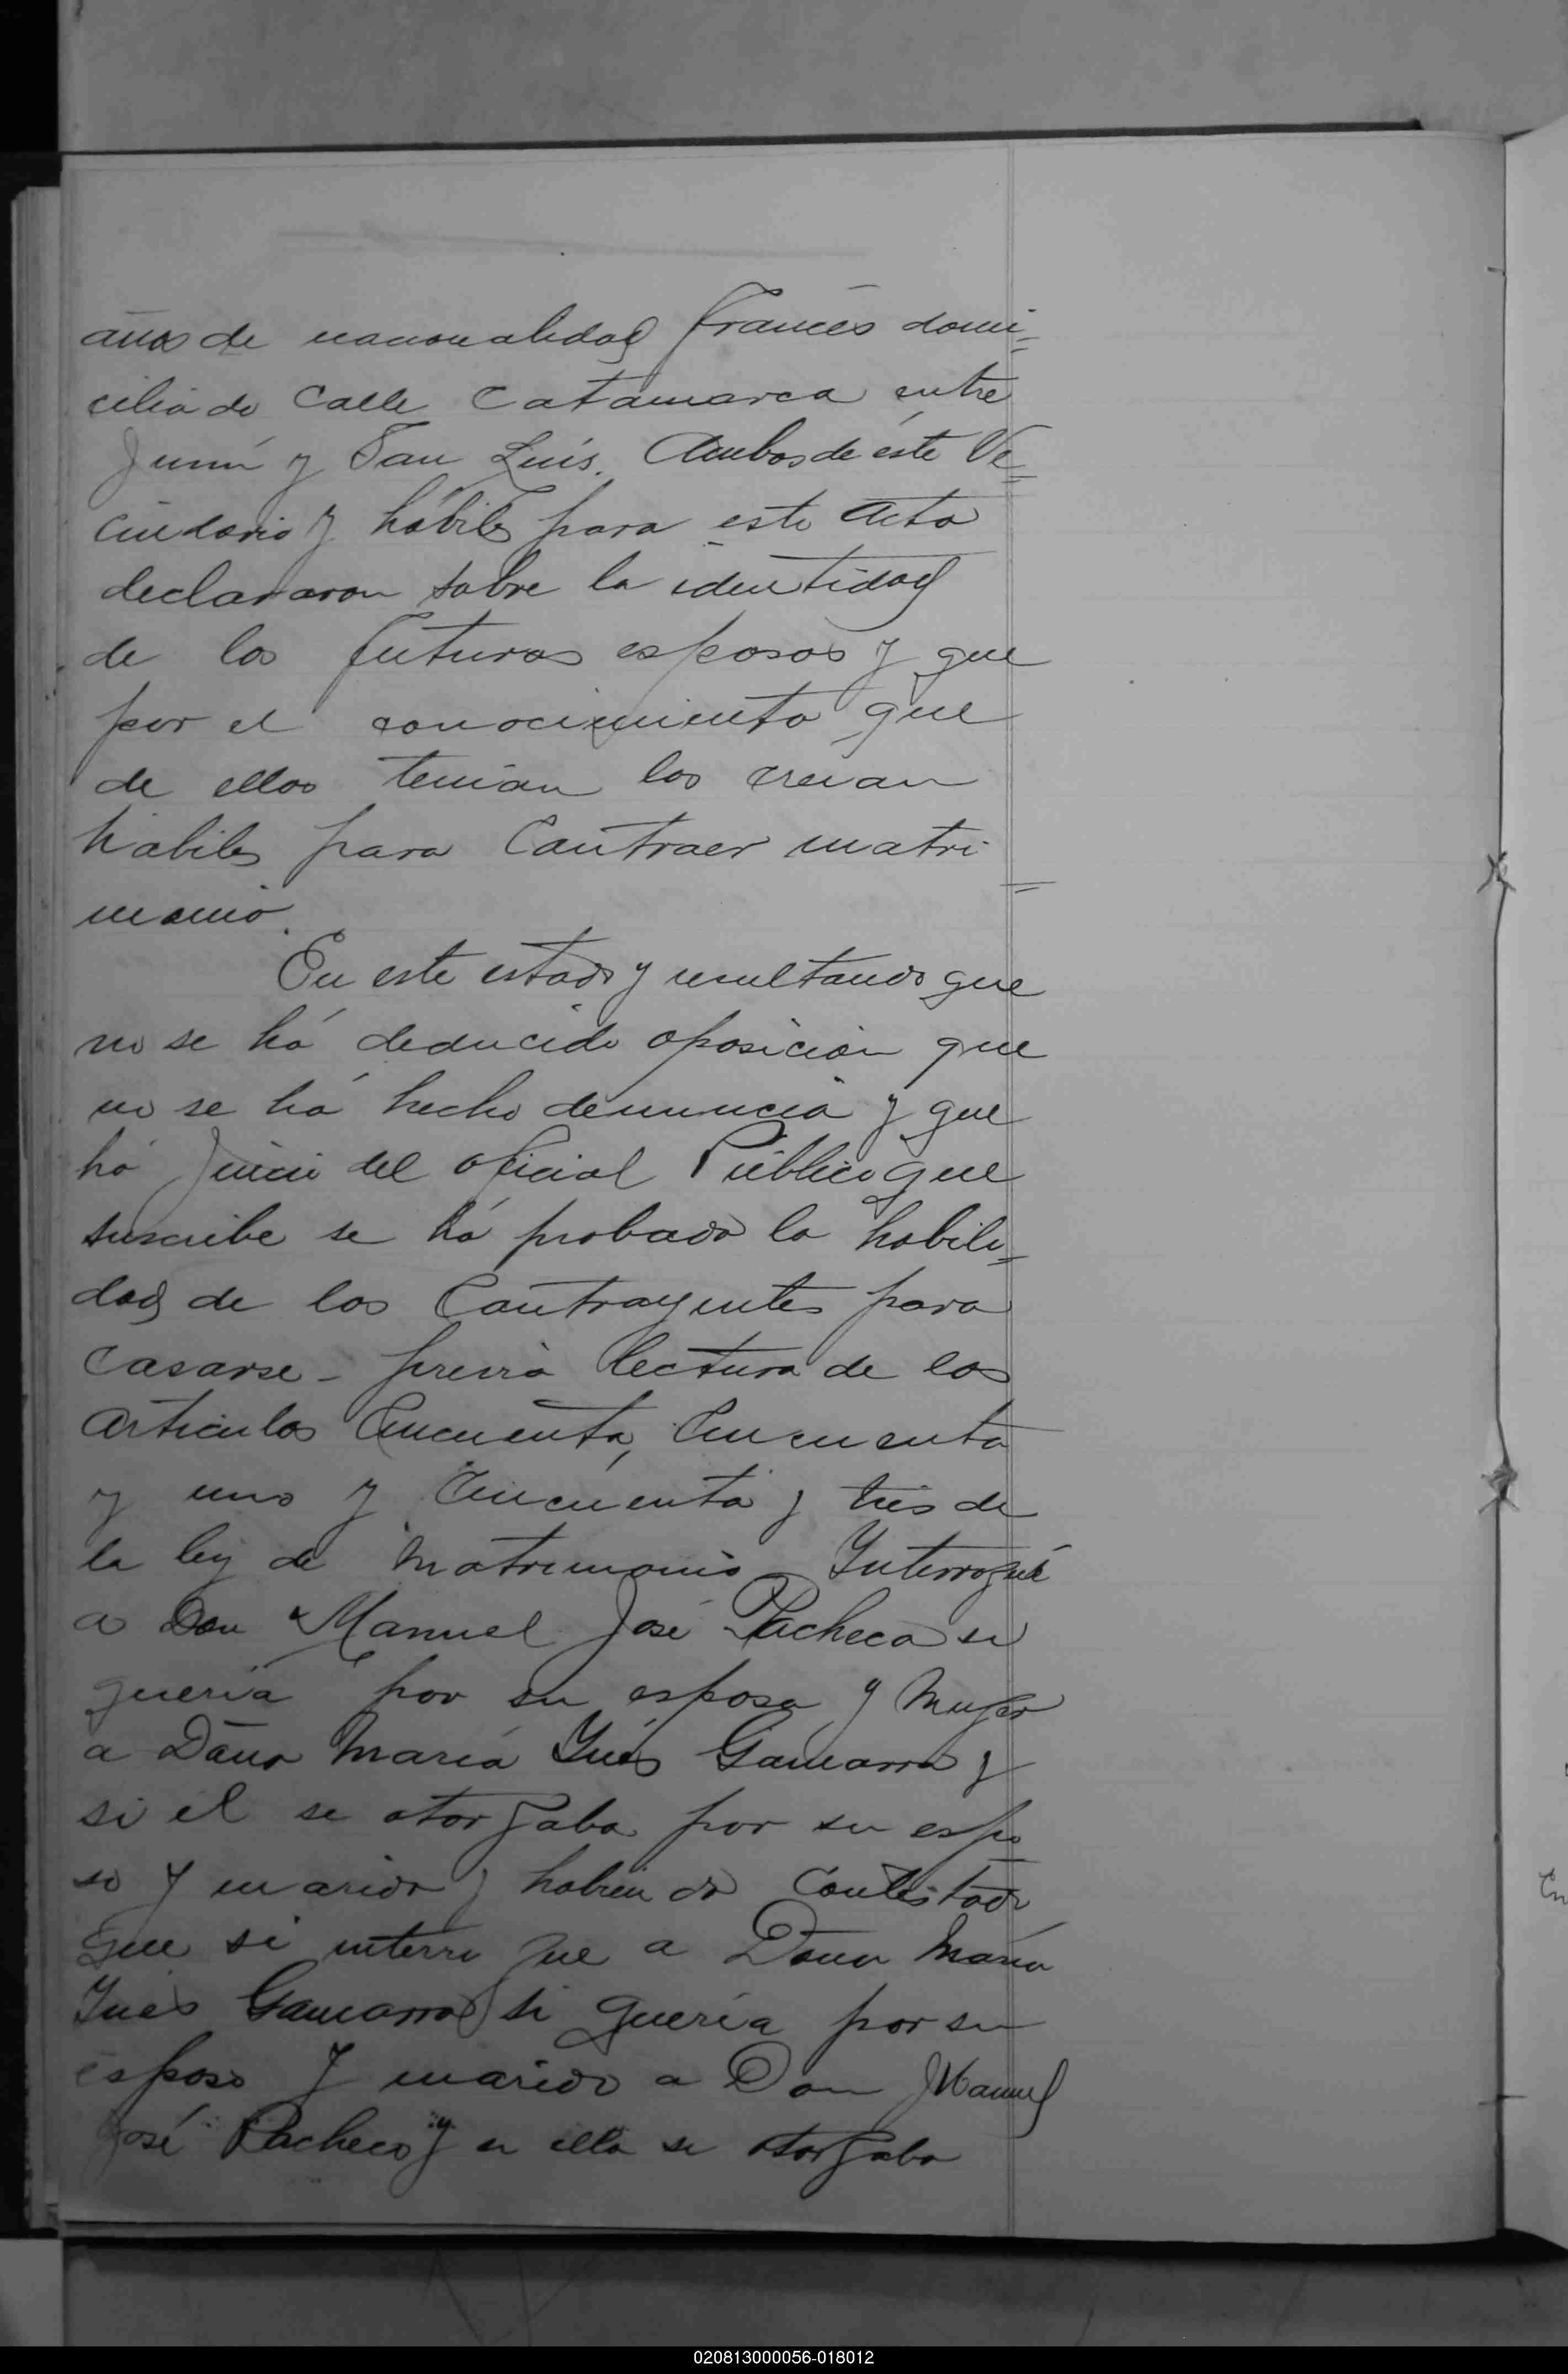 años de nacionalidad francés domi=
ciliado Calle Catamarca entre
Junín y San Luis. Ambos de éste Ve=
cindario y hábiles para este Acto
declararon sobre la identidad
de los futuros esposos y que
por el conocimiento que
de ellos tenían los creían
hábiles para Contraer matri=
monio.
En este estado y resultando que
no se há deducido oposición que
no se há hecho denuncia y que
há Juicio del oficial Público que
suscribe se há probado la habili=
dad de los Contrayentes para
Casarse - previa lectura de los
Artículos Cincuenta, Cincuenta
y uno y Cincuenta y tres de
la ley de Matrimonio Interrogué
a Don Manuel José Pacheco si
quería por su esposa y Mujer
a Doña María Inés Gamarra y
si él se otorgaba por su espo
so y marido y habiendo Contestado
que si interrogue a Doña María
Inés Gamarra si quería por su
esposo y marido a Don Manuel
José Pacheco y si ella se otorgaba
020813000056-018012